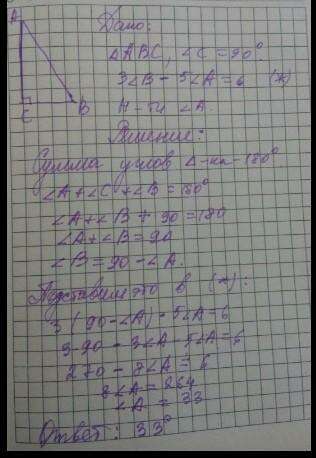 A
C
B
Дано:
△ABC, ∠C = 90°
3∠B - 5∠A = 6 (*)
Н-ти ∠A.
Решение:
Сумма углов △-ка - 180°
∠A + ∠C + ∠B = 180°
∠A + ∠B + 90 = 180
∠A + ∠B = 90
∠B = 90 - ∠A.
Подставим это в (*):
3(90 - ∠A) - 5∠A = 6
3·90 - 3∠A - 5∠A = 6
270 - 8∠A = 6
8∠A = 264
∠A = 33
Ответ: 33°